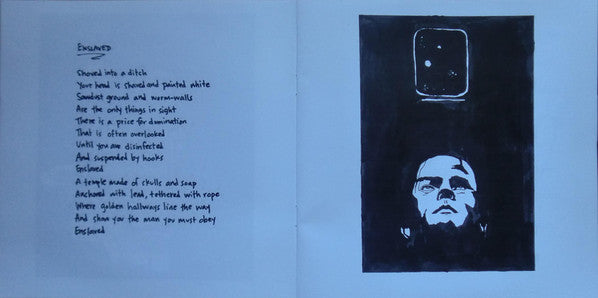 ENSLAVED
Shoved into a ditch
Your head is shaved and painted white
Sawdust ground and worm-walls
Are the only things in sight
There is a price for domination
That is often overlooked
Until you are disinfected
And suspended by hooks
Enslaved
A temple made of skulls and soap
Anchored with lead, tethered with rope
Where golden hallways line the way
And show you the man you must obey
Enslaved